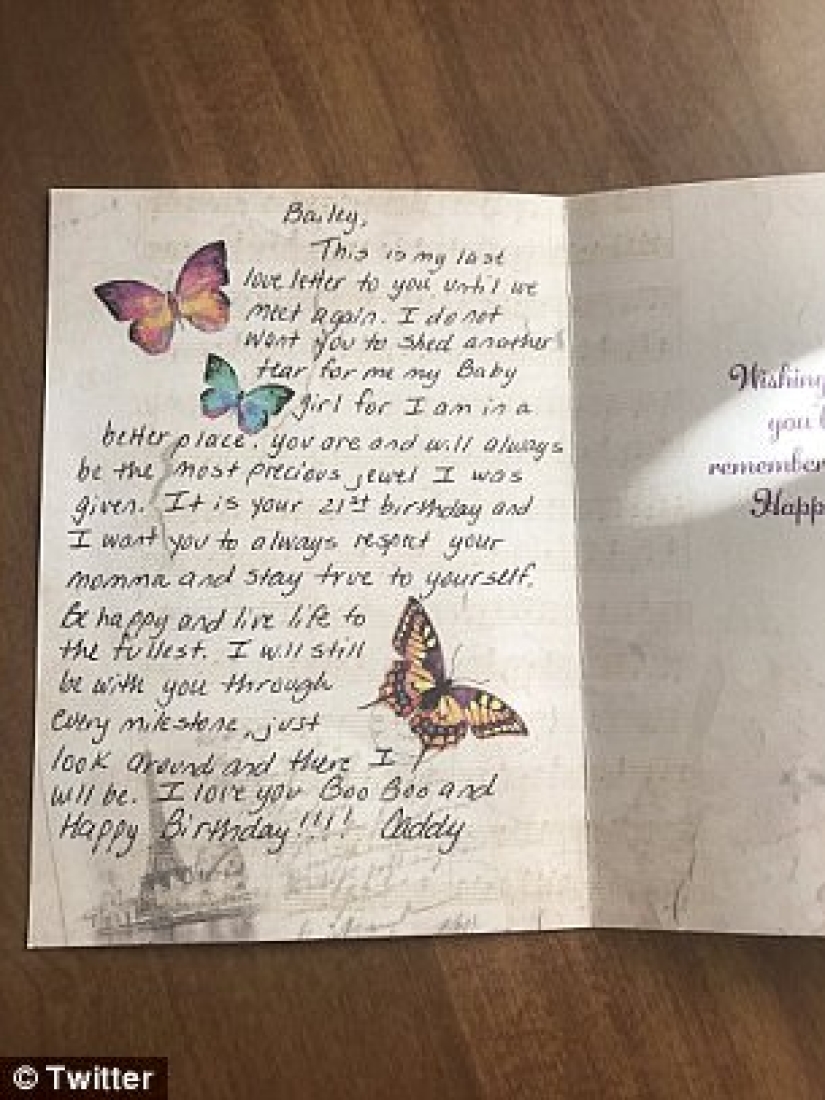 Bailey,
This is my last
love letter to you until we
meet again. I do not
want you to shed another
tear for me my Baby
girl for I am in a
better place. you are and will always
be the most precious jewel I was
given. It is your 21st birthday and
I want you to always respect your
momma and stay true to yourself.
Be happy and live life to
the fullest. I will still
be with you through
every milestone, just
look around and there I
will be. I love you Boo Boo and
Happy Birthday!!!! Daddy
Wishing
you
remember
Happ
© Twitter